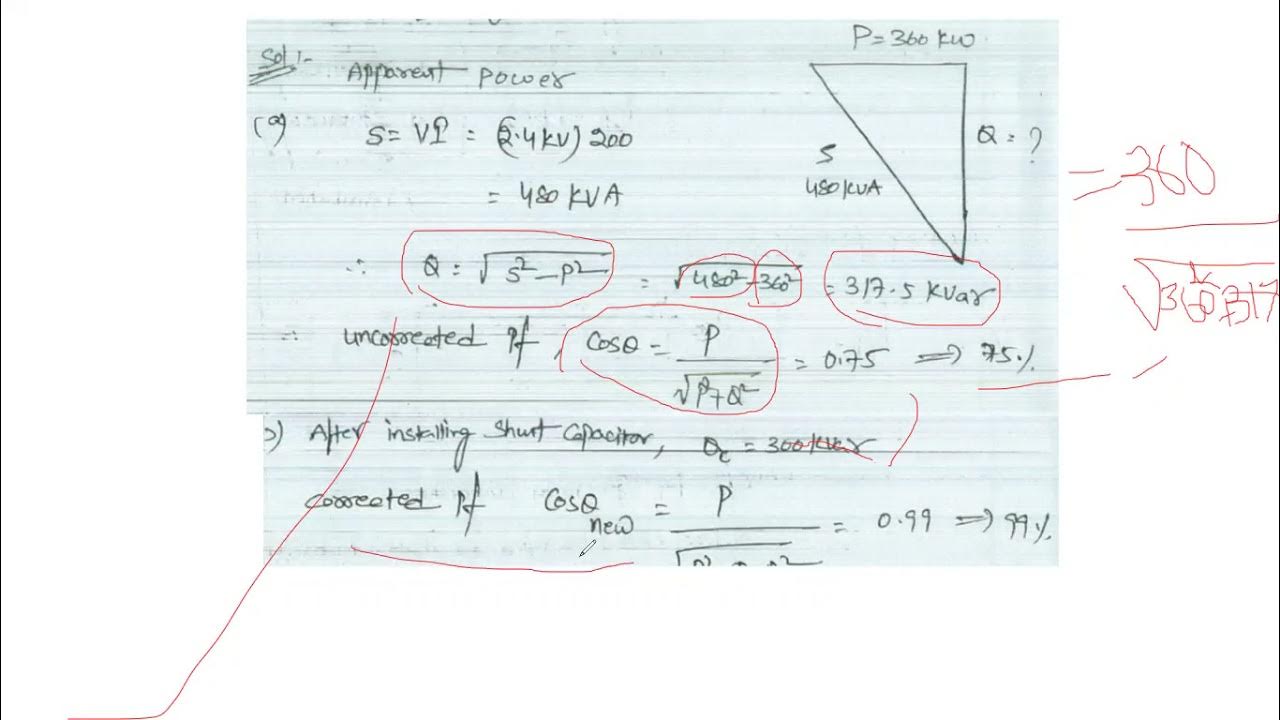 Sol :-
Apparent power
P = 360 kW
(a) S = VI = (2.4 kV) 200
= 480 KVA
S
480 KVA
Q = ?
= 360
∴ Q = √S²-P² = √480²-360² = 317.5 kvar
∴ uncorrected Pf, Cosθ = P/√P²+Q² = 0.75 ⇒ 75%
b) After installing Shunt Capacitor, Qc = 300 kvar
corrected Pf Cosθnew = P = 0.99 ⇒ 99%